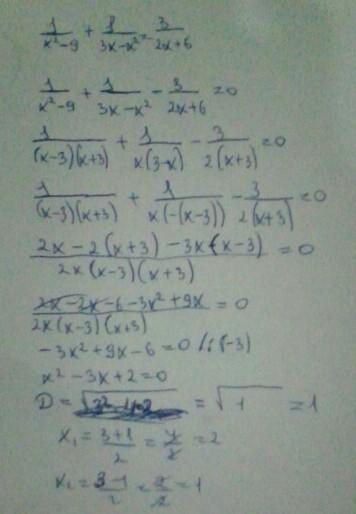 1/(x²-9) + 1/(3x-x²) = 3/(2x+6)
1/(x²-9) + 1/(3x-x²) - 3/(2x+6) = 0
1/((x-3)(x+3)) + 1/(x(3-x)) - 3/(2(x+3)) = 0
1/((x-3)(x+3)) + 1/(x(-(x-3))) - 3/(2(x+3)) = 0
(2x-2(x+3)-3x(x-3))/(2x(x-3)(x+3)) = 0
(2x-2x-6-3x²+9x)/(2x(x-3)(x+3)) = 0
-3x²+9x-6=0 /:(-3)
x²-3x+2=0
D = √(3²-4·2) = √1 = 1
x₁ = (3+1)/2 = 4/2 = 2
x₂ = (3-1)/2 = 2/2 = 1